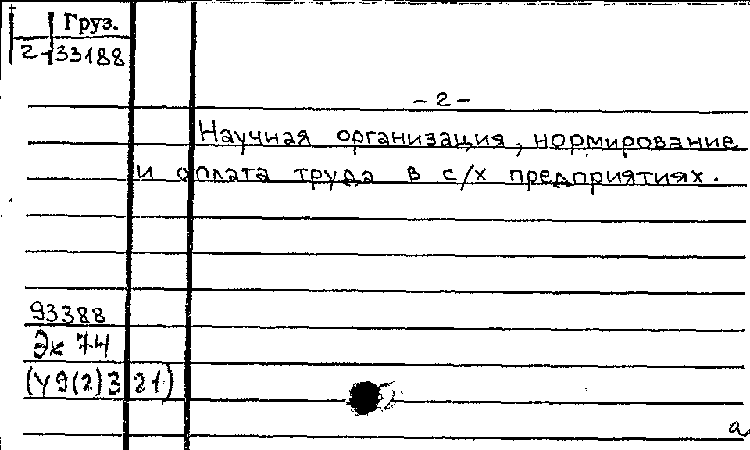 Груз.
2-33188
- 2 -
Научная организация, нормирование
и оплата труда в с/х предприятиях.
93388
Эк 74
(У9(2)321)
а